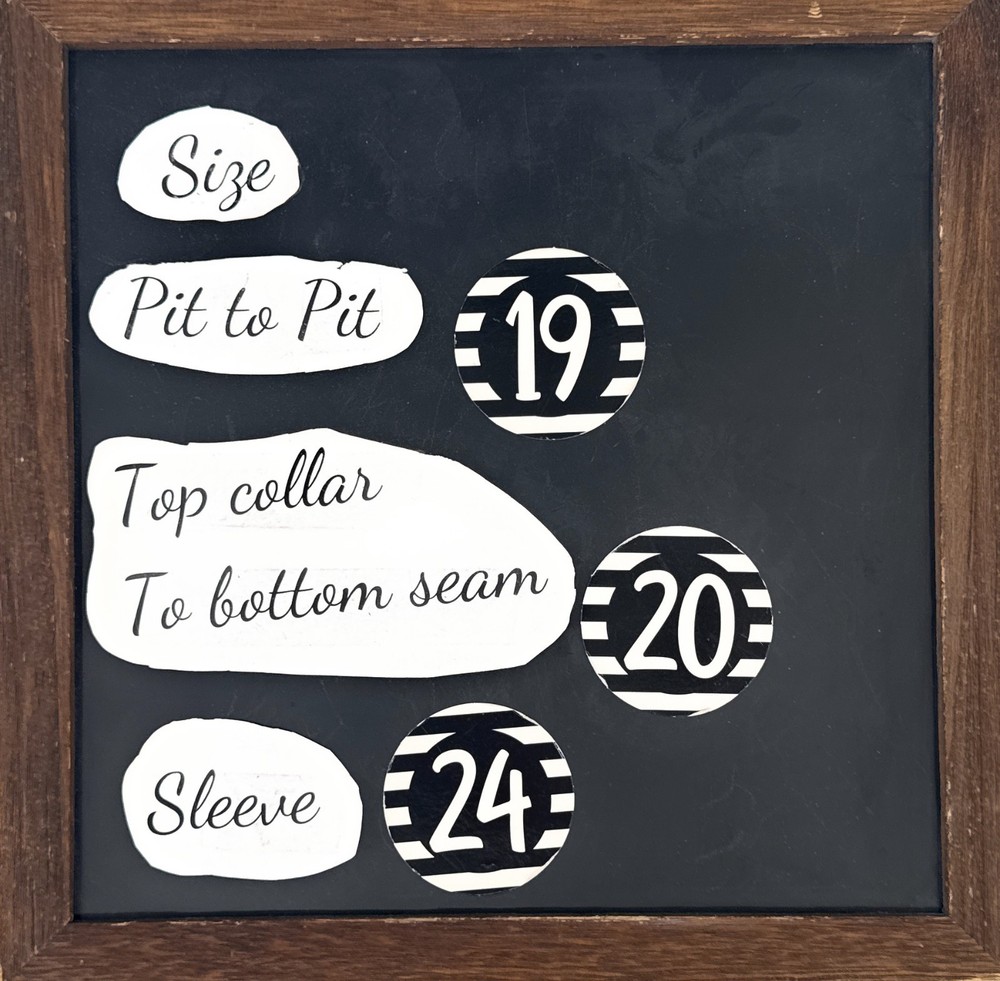 Size
Pit to Pit 19
Top collar
To bottom seam 20
Sleeve 24